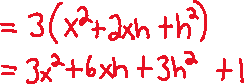 = 3(x²+2xh+h²)
= 3x²+6xh+3h² +1